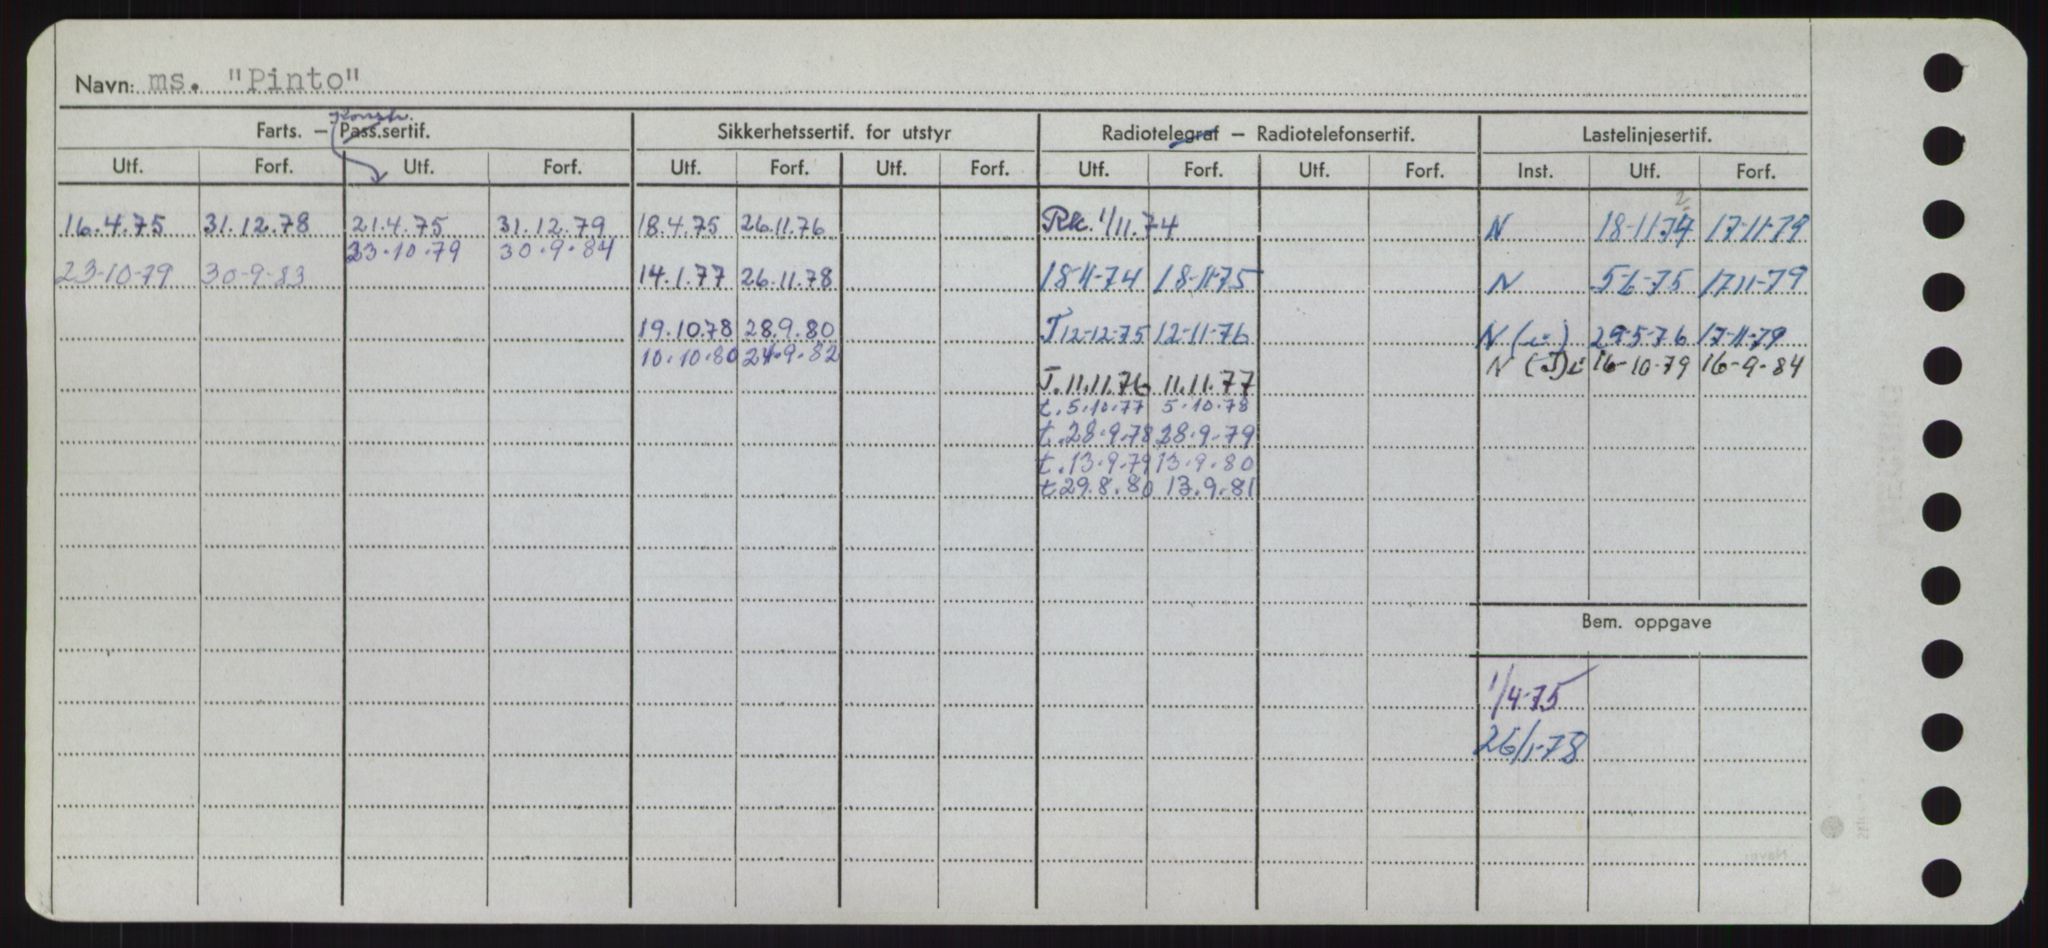 Navn: ms. "Pinto"
Konstr.
Farts. – Pass.sertif. Sikkerhetssertif. for utstyr Radiotelegraf – Radiotelefonsertif. Lastelinjesertif.
Utf. Forf. Utf. Forf. Utf. Forf. Utf. Forf. Utf. Forf. Utf. Forf. Inst. Utf. Forf.
16.4.75 31.12.78 21.4.75 31.12.79 18.4.75 26.11.76 Rk. 1/11.74 N 18-11-74 17-11-79
23.10.79 30.9.84
23-10-79 30-9-83 14.1.77 26.11.78 18-11-74 18-11-75 N 5-6-75 17-11-79
19.10.78 28.9.80 T 12-12-75 12-11-76 N (i) 29-5-76 17-11-79
10.10.80 24.9.82 N (J)i 16-10-79 16-9-84
T. 11.11.76 11.11.77
t. 5.10.77 5.10.78
t. 28.9.78 28.9.79
t. 13.9.79 13.9.80
t. 29.8.80 13.9.81
Bem. oppgave
1/4-75
26/1-78